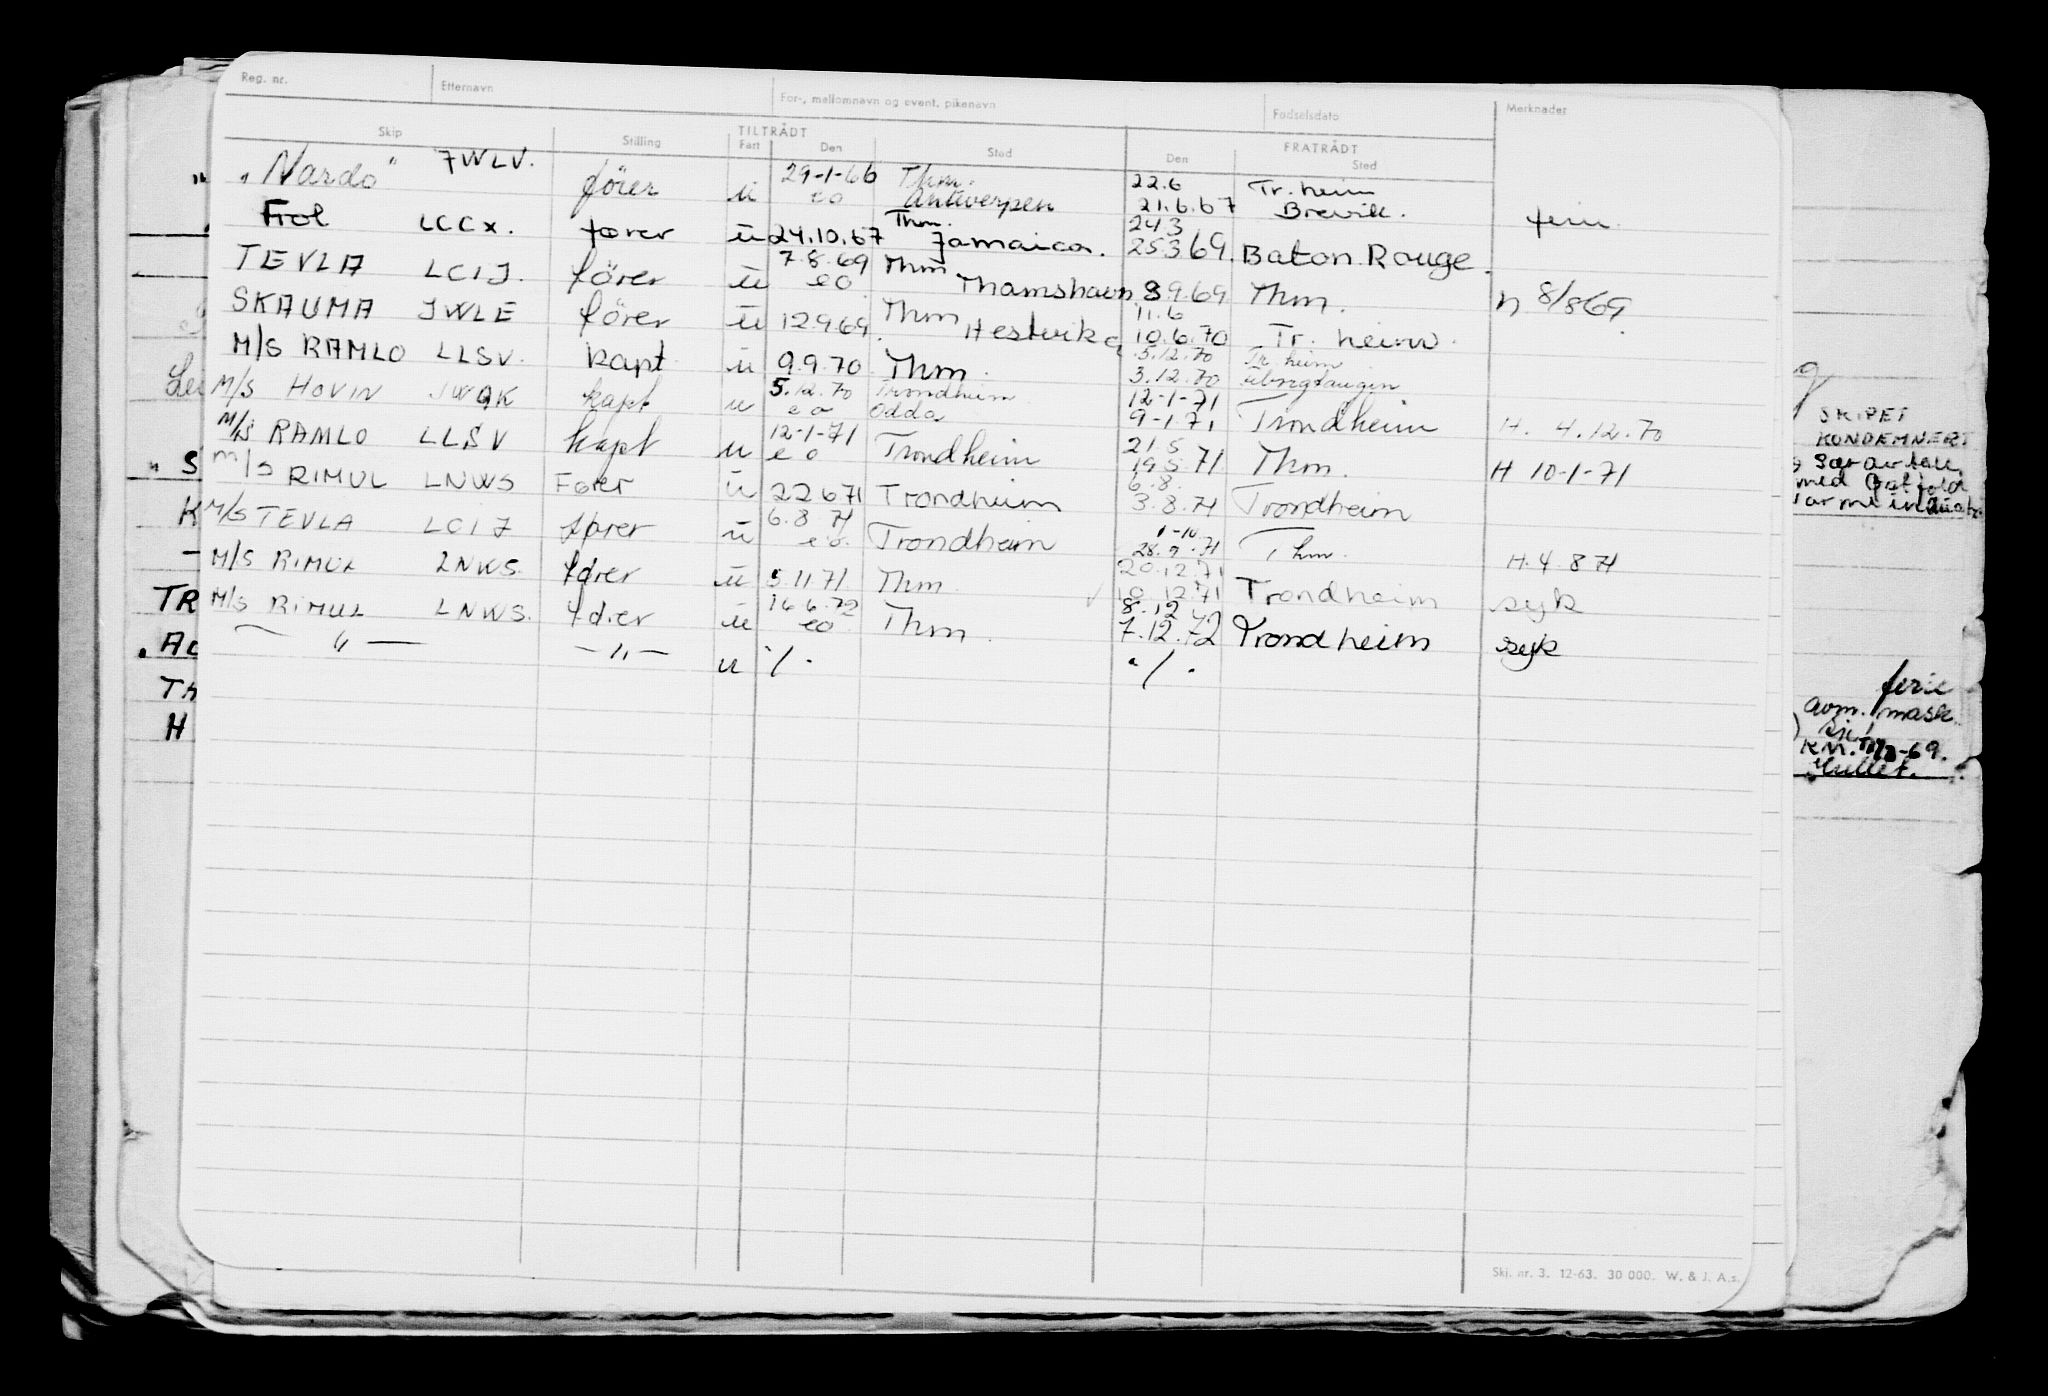 Reg. nr. Etternavn For-, mellomnavn og event. pikenavn Fødselsdato Merknader
Skip Stilling TILTRÅDT FRATRÅDT
Fart Den Sted Den Sted
"Nardo" JWLV. förer u 29-1-66 Thm. 22.6 Tr.heim
eo Antwerpen 21.6.67 Brevik.
Frol LCCX. fører u 24.10.67 Thm. Jamaica. 24.3 25.3.69. Baton Rouge.
TEVLA LCIJ. förer u 7.8.69 Thm
eo Thamshavn 8.9.69 Thm. n 8/8 69
SKAUMA JWLE förer u 12.9.69. Thm Hestvika 11.6
10.6.70 Tr. heim.
M/S RAMLO LLSV. kapt u 9.9.70 Thm. 5.12.70 Tr. heim
3.12.70
M/S HOVIN JWQK kapt u 5.12.70 Trondheim 12-1-71
eo Odda 9-1.71 Trondheim H. 4.12.70
M/S RAMLO LLSV kapt u 12-1-71 Trondheim 21.5
eo 19.5.71 Thm. H 10-1-71
M/S RIMUL LNWS Fører u 22671 Trondheim 6.8.
3.8.71 Trondheim
M/S TEVLA LCIJ fører u 6.8 71 Trondheim 1-10
eo. 28.9.71 Thm. H. 4.8 71
M/S RIMUL LNWS. fører u 5.11.71. Thm 20.12.71
10.12.71 Trondheim syk
M/S RIMUL LNWS. fører u 16.6.72 Thm. 8.12
eo 7.12.72 Trondheim syk
— " — — " — u ·/· ·/·
SKIPET
KONDEMNERT
ferie
avm. mask
Ski. nr. 3. 12-63. 30 000. W. & J. A.s.